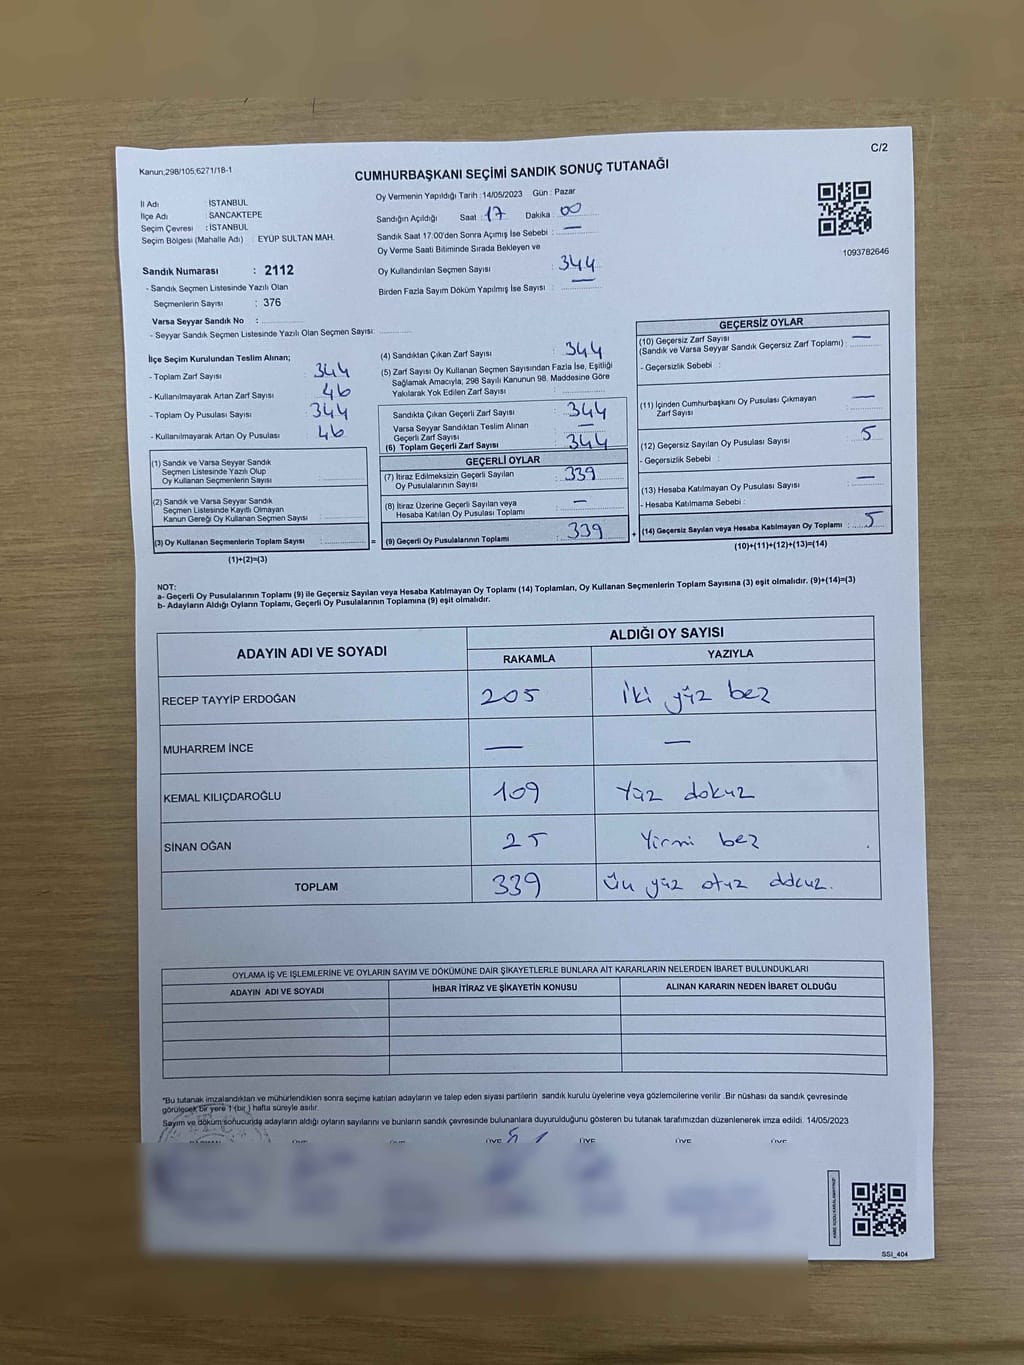 C/2
Kanun,298/105,6271/18-1
CUMHURBAŞKANI SEÇİMİ SANDIK SONUÇ TUTANAĞI
İl Adı : İSTANBUL
İlçe Adı : SANCAKTEPE
Seçim Çevresi : İSTANBUL
Seçim Bölgesi (Mahalle Adı) : EYÜP SULTAN MAH.
Sandık Numarası : 2112
- Sandık Seçmen Listesinde Yazılı Olan
Seçmenlerin Sayısı : 376
Varsa Seyyar Sandık No :
- Seyyar Sandık Seçmen Listesinde Yazılı Olan Seçmen Sayısı:
Oy Vermenin Yapıldığı Tarih :14/05/2023 Gün : Pazar
Sandığın Açıldığı Saat : 17 Dakika : 00
Sandık Saat 17:00'den Sonra Açımış İse Sebebi : —
Oy Verme Saati Bitiminde Sırada Bekleyen ve
Oy Kullandırılan Seçmen Sayısı : 344
Birden Fazla Sayım Döküm Yapılmış İse Sayısı : —
1093782646
İlçe Seçim Kurulundan Teslim Alınan;
- Toplam Zarf Sayısı : 344
- Kullanılmayarak Artan Zarf Sayısı : 46
- Toplam Oy Pusulası Sayısı : 344
- Kullanılmayarak Artan Oy Pusulası : 46
(1) Sandık ve Varsa Seyyar Sandık
Seçmen Listesinde Yazılı Olup
Oy Kullanan Seçmenlerin Sayısı :
(2) Sandık ve Varsa Seyyar Sandık
Seçmen Listesinde Kayıtlı Olmayan
Kanun Gereği Oy Kullanan Seçmen Sayısı :
(3) Oy Kullanan Seçmenlerin Toplam Sayısı :
(1)+(2)=(3)
(4) Sandıktan Çıkan Zarf Sayısı : 344
(5) Zarf Sayısı Oy Kullanan Seçmen Sayısından Fazla İse, Eşitliği
Sağlamak Amacıyla, 298 Sayılı Kanunun 98. Maddesine Göre
Yakılarak Yok Edilen Zarf Sayısı :
Sandıkta Çıkan Geçerli Zarf Sayısı : 344
Varsa Seyyar Sandıktan Teslim Alınan
Geçerli Zarf Sayısı : —
(6) Toplam Geçerli Zarf Sayısı : 344
GEÇERLİ OYLAR
(7) İtiraz Edilmeksizin Geçerli Sayılan
Oy Pusulalarının Sayısı : 339
(8) İtiraz Üzerine Geçerli Sayılan veya
Hesaba Katılan Oy Pusulası Toplamı : —
= (9) Geçerli Oy Pusulalarının Toplamı : 339
GEÇERSİZ OYLAR
(10) Geçersiz Zarf Sayısı
(Sandık ve Varsa Seyyar Sandık Geçersiz Zarf Toplamı) : —
- Geçersizlik Sebebi :
(11) İçinden Cumhurbaşkanı Oy Pusulası Çıkmayan
Zarf Sayısı : —
(12) Geçersiz Sayılan Oy Pusulası Sayısı : 5
- Geçersizlik Sebebi :
(13) Hesaba Katılmayan Oy Pusulası Sayısı : —
- Hesaba Katılmama Sebebi :
+ (14) Geçersiz Sayılan veya Hesaba Katılmayan Oy Toplamı : 5
(10)+(11)+(12)+(13)=(14)
NOT:
a- Geçerli Oy Pusulalarının Toplamı (9) ile Geçersiz Sayılan veya Hesaba Katılmayan Oy Toplamı (14) Toplamları, Oy Kullanan Seçmenlerin Toplam Sayısına (3) eşit olmalıdır. (9)+(14)=(3)
b- Adayların Aldığı Oyların Toplamı, Geçerli Oy Pusulalarının Toplamına (9) eşit olmalıdır.
ADAYIN ADI VE SOYADI
ALDIĞI OY SAYISI
RAKAMLA YAZIYLA
RECEP TAYYİP ERDOĞAN 205 İki yüz bez
MUHARREM İNCE — —
KEMAL KILIÇDAROĞLU 109 Yüz dokuz
SİNAN OĞAN 25 Yirmi bez
TOPLAM 339 yüz otuz
OYLAMA İŞ VE İŞLEMLERİNE VE OYLARIN SAYIM VE DÖKÜMÜNE DAİR ŞİKAYETLERLE BUNLARA AİT KARARLARIN NELERDEN İBARET BULUNDUKLARI
ADAYIN ADI VE SOYADI İHBAR İTİRAZ VE ŞİKAYETİN KONUSU ALINAN KARARIN NEDEN İBARET OLDUĞU
*Bu tutanak imzalandıktan ve mühürlendikten sonra seçime katılan adayların ve talep eden siyasi partilerin sandık kurulu üyelerine veya gözlemcilerine verilir. Bir nüshası da sandık çevresinde
görülecek bir yere 1 (bir ) hafta süreyle asılır.
Sayım ve döküm sonucunda adayların aldığı oyların sayılarını ve bunların sandık çevresinde bulunanlara duyurulduğunu gösteren bu tutanak tarafımızdan düzenlenerek imza edildi. 14/05/2023
ÜYE ÜYE ÜYE ÜYE ÜYE
SSI_404